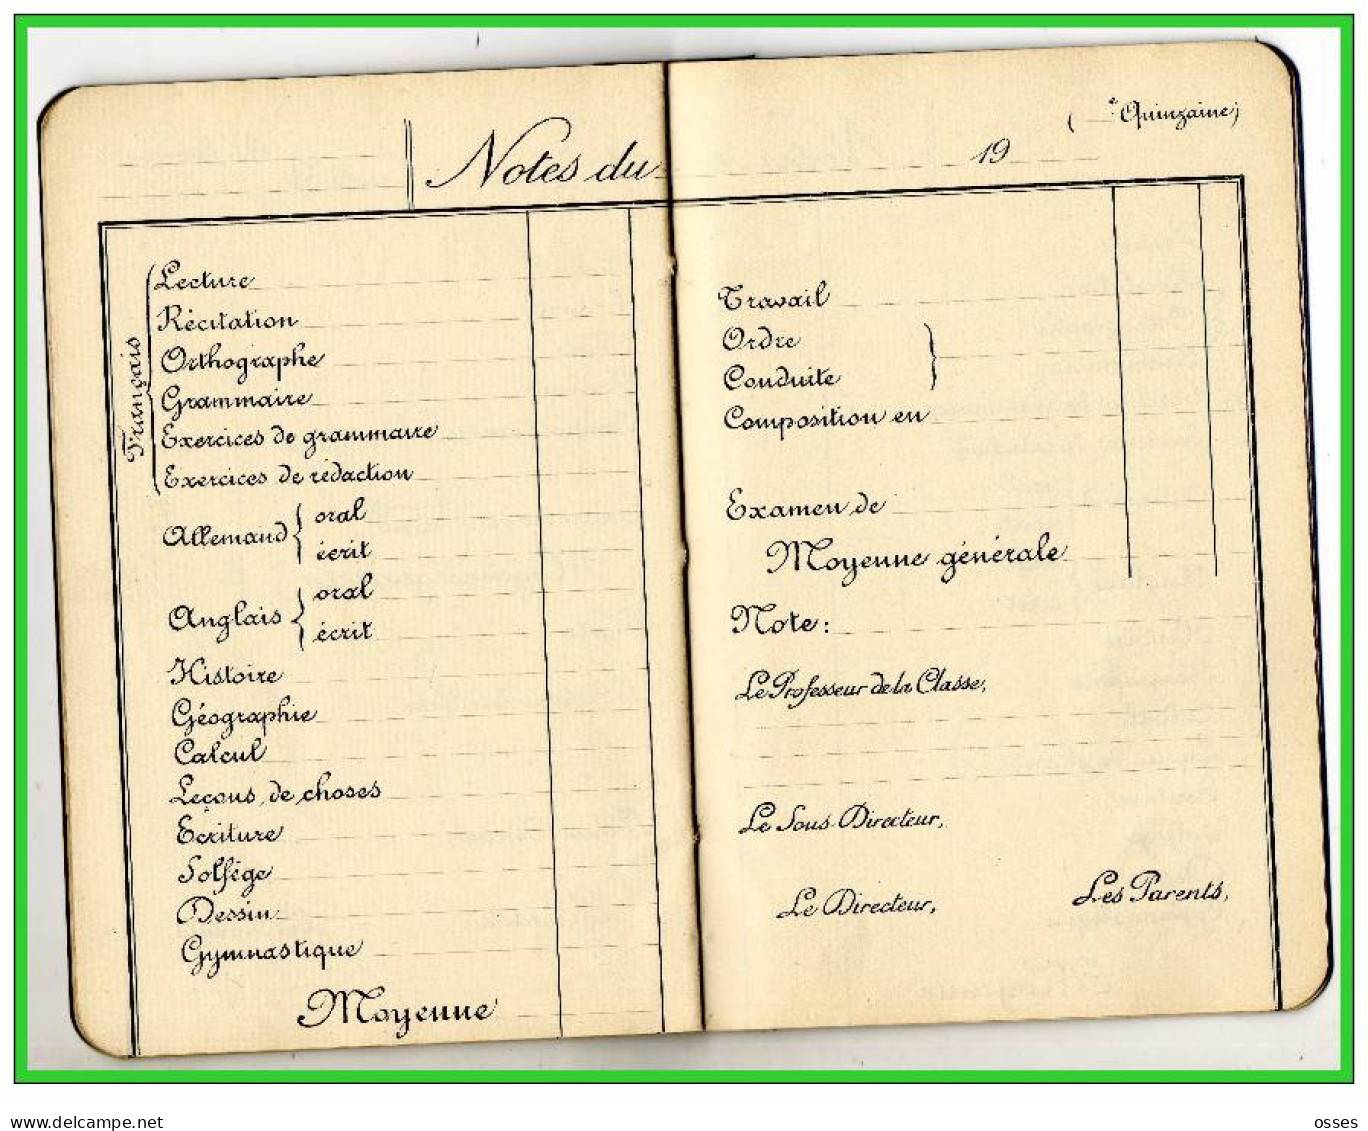 Notes du
Français
Lecture
Récitation
Orthographe
Grammaire
Exercices de grammaire
Exercices de rédaction
Allemand { oral
écrit
Anglais { oral
écrit
Histoire
Géographie
Calcul
Leçons de choses
Ecriture
Solfège
Dessin
Gymnastique
Moyenne
( e Quinzaine)
19
Travail
Ordre
Conduite
Composition en
Examen de
Moyenne générale
Note:
Le Professeur de la Classe,
Le Sous-Directeur,
Le Directeur,
Les Parents,
www.delcampe.net
osses